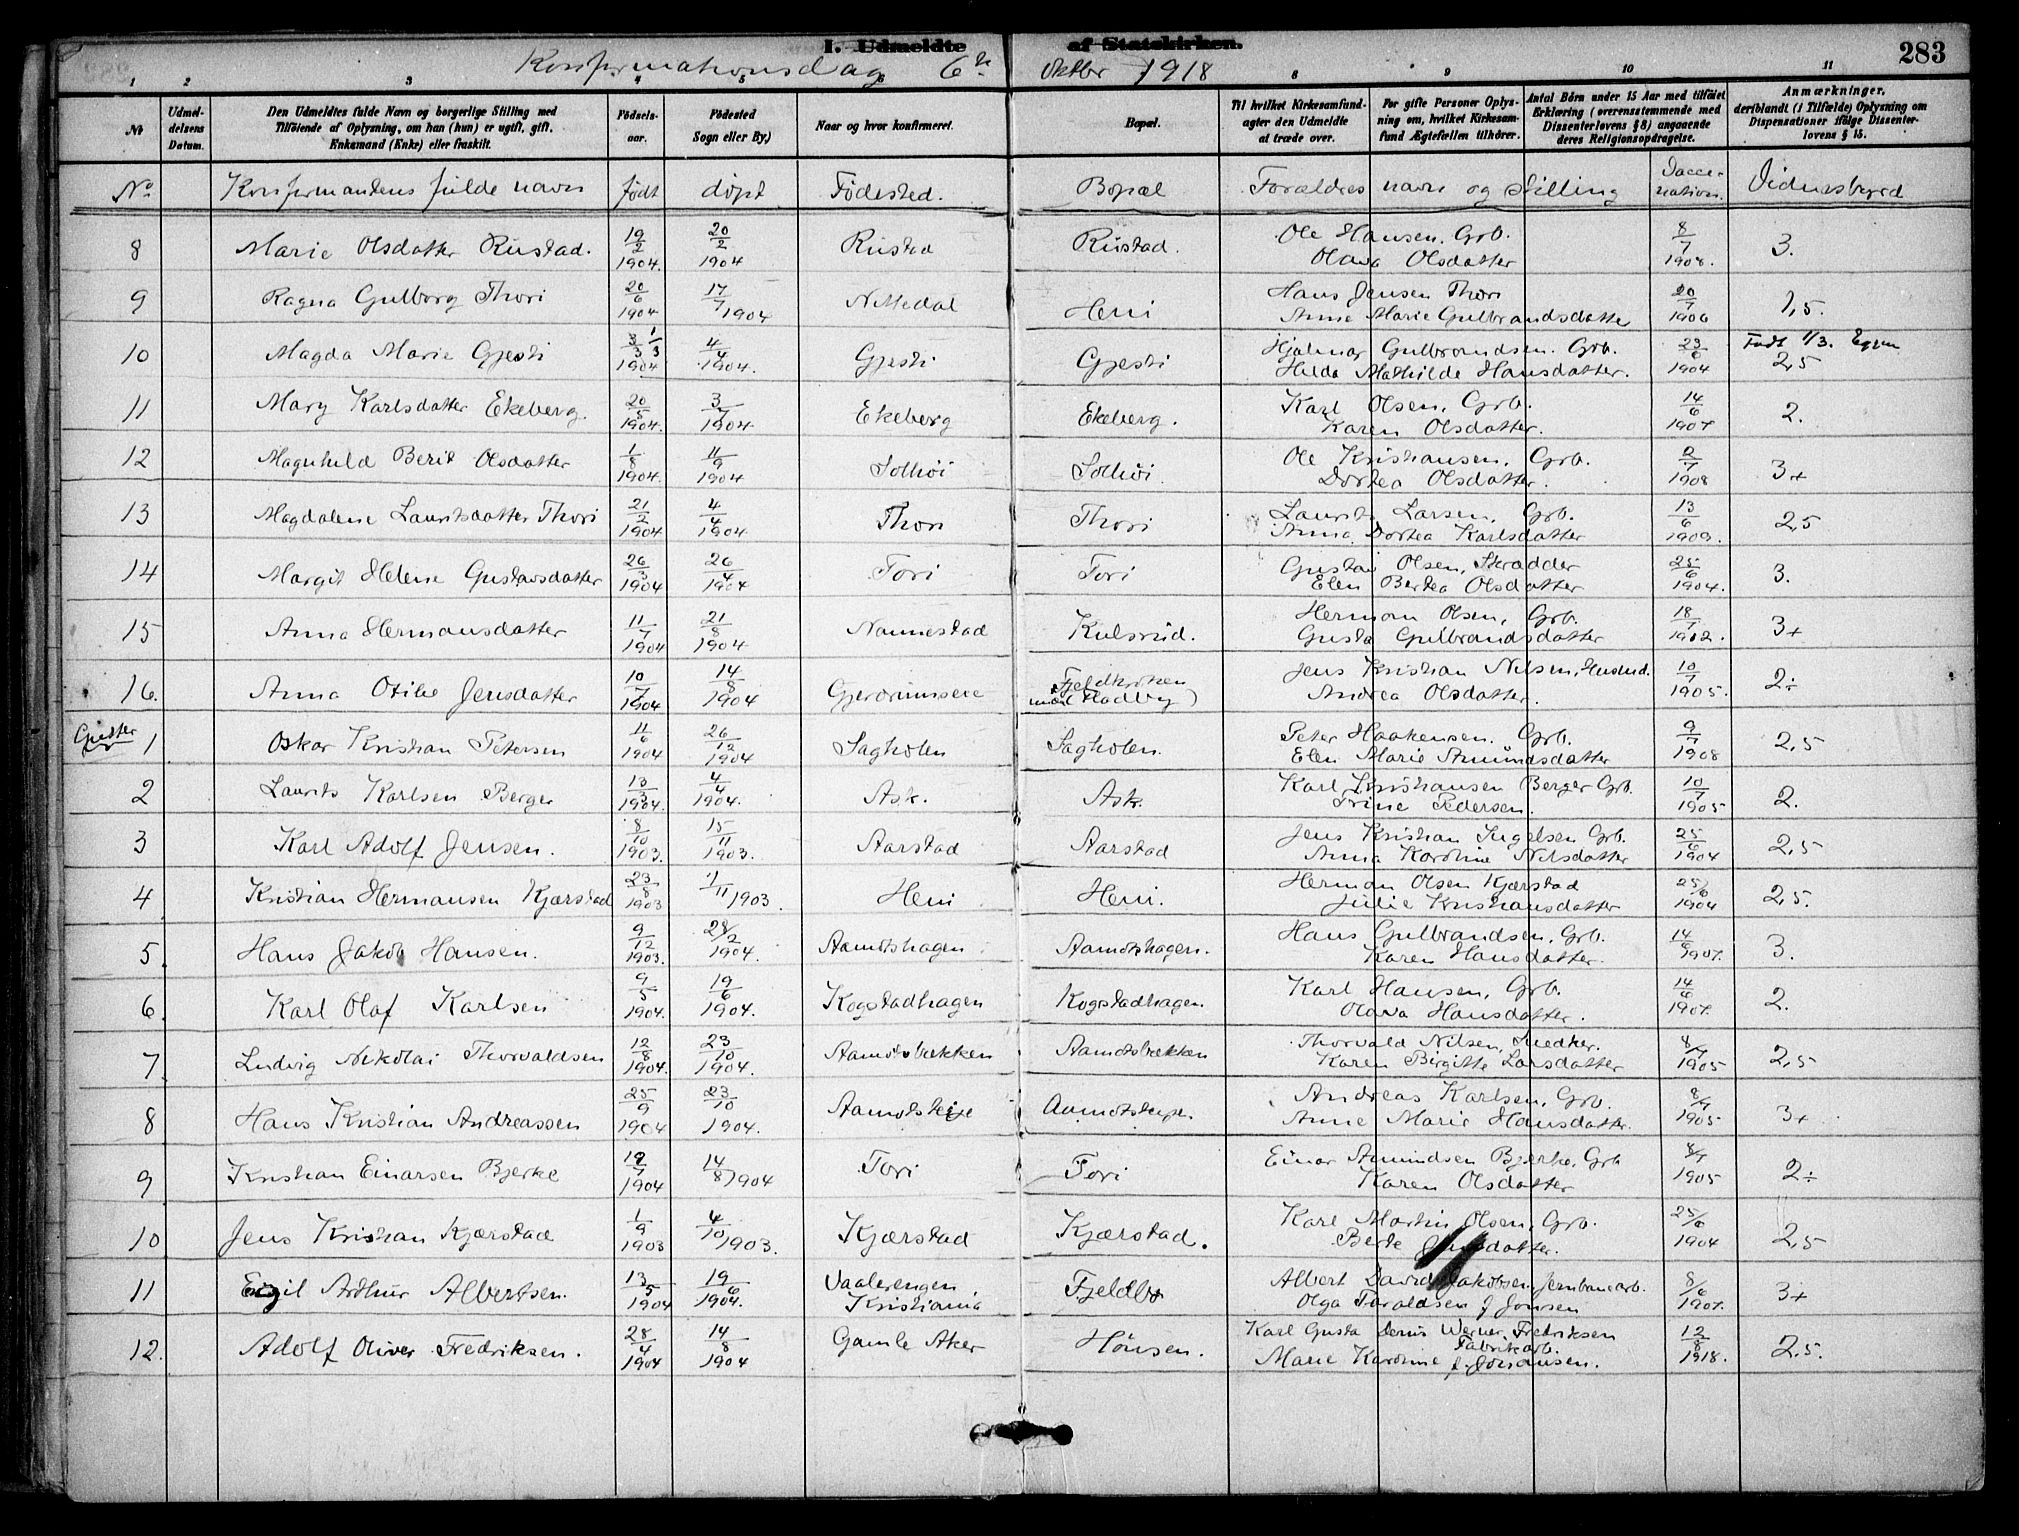 I. Udmeldte af Statskirken. 283
Konfirmationsdag 6te oktbr 1918
1 2 3 4 5 6 8 9 10 11
№ Udmel-delsens Datum. Den Udmeldtes fulde Navn og borgerlige Stilling med Tilföiende af Oplysning, om han (hun) er ugift, gift, Enkemand (Enke) eller fraskilt. Födsels-aar. Födested Sogn eller By) Naar og hvor konfirmeret. Bopæl. Til hvilket Kirkesamfund agter den Udmeldte at træde over. For gifte Personer Oplysning om, hvilket Kirkesamfund Ægtefællen tilhörer. Antal Börn under 15 Aar med tilföiet Erklæring (overensstemmende med Dissenterlovens § 8) angaaende deres Religionsopdragelse. Anmærkninger, deriblandt (i Tilfælde) Oplysning om Dispensationer ifölge Dissenterlovens § 15.
No Konfirmandens fulde navn født døpt Fødested. Bopæl Forældres navn og stilling Vaccination. Vidnesbyrd
8 Marie Olsdatter Rustad. 19/2 1904. 20/2 1904 Rustad Rustad. Ole Hansen, Grb. Olava Olsdatter 8/7 1908. 3.
9 Ragna Gulborg Thori 20/6 1904 17/7 1904 Nittedal Heni Hans Jensen Thori Anne Marie Gulbrandsdatter 20/7 1906 1,5.
10 Magda Marie Gjesti 3/3 1/3 1904 4/4 1904. Gjesti Gjesti Hjalmar Gulbrandsen. Grb. Hilda Mathilde Hansdatter. 23/6 1904 Født 1/3. 2,5
11 Mary Karlsdatter Ekeberg. 20/5 1904. 3/7 1904 Ekeberg Ekeberg. Karl Olsen, Grb. Karen Olsdatter. 14/6 1907 2.
12 Magnhild Berit Olsdatter 1/8 1904. 11/9 1904 Solhøi Solhøi. Ole Kristiansen, Grb. Dortea Olsdatter. 2/7 1908 3+
13 Magdalene Lauritsdatter Thori 21/2 1904 4/4 1904 Thori Thori Laurits Larsen, Grb. Anna Dortea Karlsdatter 13/6 1909. 2,5
14 Margit Helene Gustavsdatter 26/3 1904 26/4 1904 Tori Tori Gustav Olsen, Skrædder Elen Bertea Olsdatter 25/6 1904. 3.
15 Anna Hermansdatter 11/7 1904 21/8 1904 Nannestad Kulsrud. Herman Olsen, Grb. Gusta Gulbrandsdatter 18/7 1912. 3+
16. Anna Otilie Jensdatter 10/7 1904 14/8 1904 Gjerdrumseie Fjeldkroken (Fladby) Jens Kristian Nilsen, Husmd. Andrea Olsdatter. 10/7 1905. 2÷
Gutter 1 Oskar Kristian Petersen 11/6 1904 26/12 1904 Sagholen Sagholen. Peter Haakensen. Grb. Elen Marie Amundsdatter 9/7 1908 2,5
2 Laurits Karlsen Berger 13/3 1904. 4/4 1904. Ask. Ask. Karl Kristiansen Berger Grb. Trine Pedersen 10/7 1905 2.
3 Karl Adolf Jensen. 8/10 1903. 15/11 1903. Aarstad Aarstad Jens Kristian Ingelsen Grb. Anna Karoline Nilsdatter 25/6 1904 2,5
4 Kristian Hermansen Kjærstad 23/8 1903 1/11 1903. Heni Heni. Herman Olsen Kjærstad Julie Kristiansdatter 25/6 1904 2,5.
5. Hans Jakob Hansen. 9/12 1903. 28/2 1904. Aamotshagen Aamotshagen. Hans Gulbrandsen, Grb. Karen Hansdatter. 14/6 1907. 3.
6. Karl Olaf Karlsen 9/5 1904. 19/6 1904. Kogstadhagen Kogstadhagen. Karl Hansen, Grb. Olava Hansdatter. 14/6 1907. 2.
7. Ludvig Nikolai Thorvaldsen 12/8 1904. 23/10 1904. Aamotsbækken Aamotsbækken Thorvald Nilsen, Snedker. Karen Birgitte Larsdatter 8/7 1905 2,5
8 Hans Kristian Andreassen 25/9 1904 23/10 1904. Aamotseie Andreas Karlsen, Grb. Anne Marie Hansdatter. 8/7 1905 3+
9 Kristian Einarsen Bjerke 12/7 1904 14/8 1904 Tori Tori Einar Amundsen Bjerke, Grb Karen Olsdatter 8/7 1905 2÷
10 Jens Kristian Kjærstad 1/9 1903 4/10 1903. Kjærstad Kjærstad. Karl Martin Olsen, Grb. Berte datter. 25/6 1904 2,5
11 Egil Arthur Albertsen. 13/5 1904 19/6 1904. Vaalerengen Kristiania Fjeldbo Albert David Jakobsen Jernbanearb. Olga Toraldsen f. Jonsen 8/6 1907. 3+
12. Adolf Oliver Fredriksen. 28/4 1904 14/8 1904 Gamle Aker Hønsen. Karl Gusta Denis Werner Fredriksen Fabrikarb. Marie Karoline f. Johansen. 12/8 1918. 2,5.